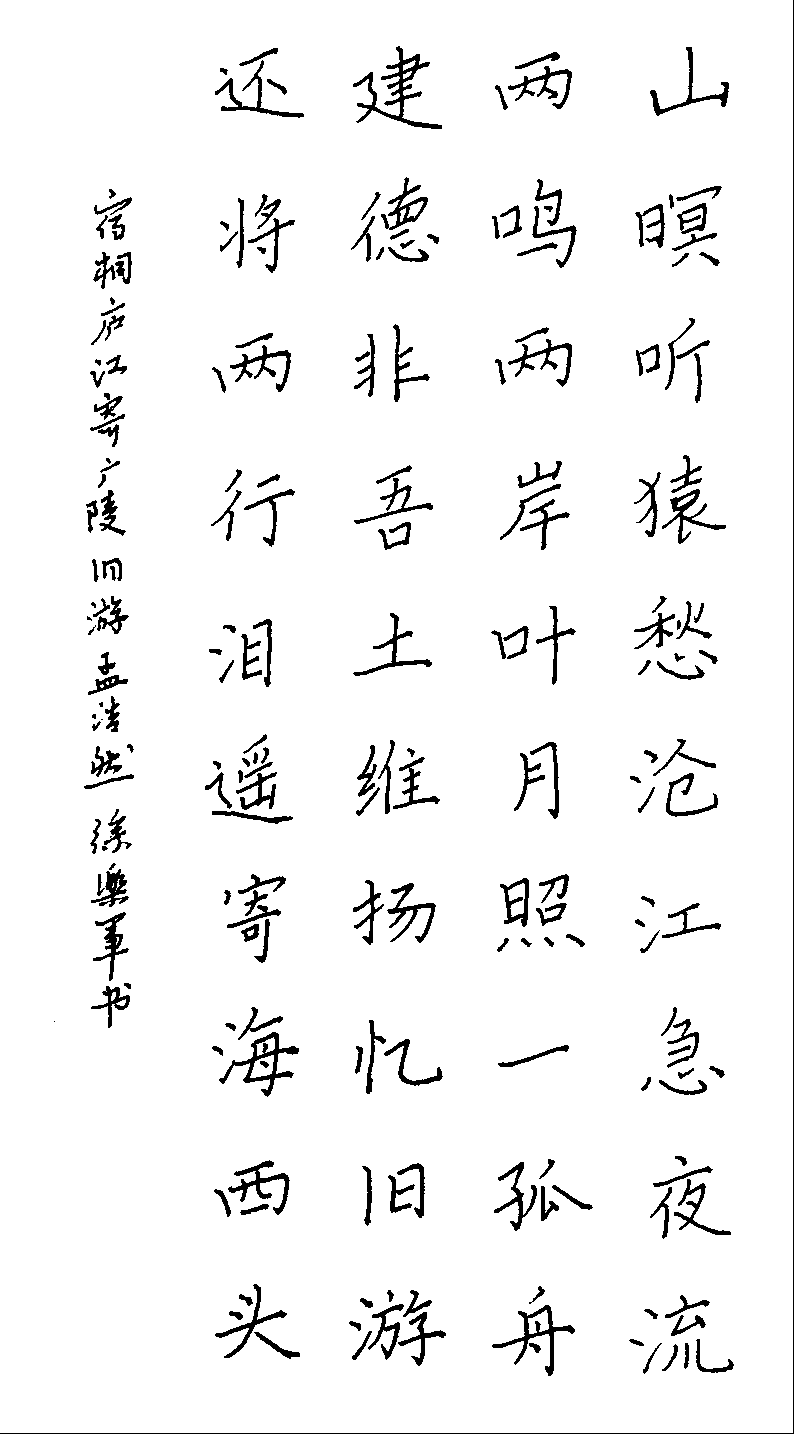 山暝听猿愁沧江急夜流
两鸣两岸叶月照一孤舟
建德非吾土维扬忆旧游
还将两行泪遥寄海西头
宿桐庐江寄广陵旧游孟浩然 徐樂軍书